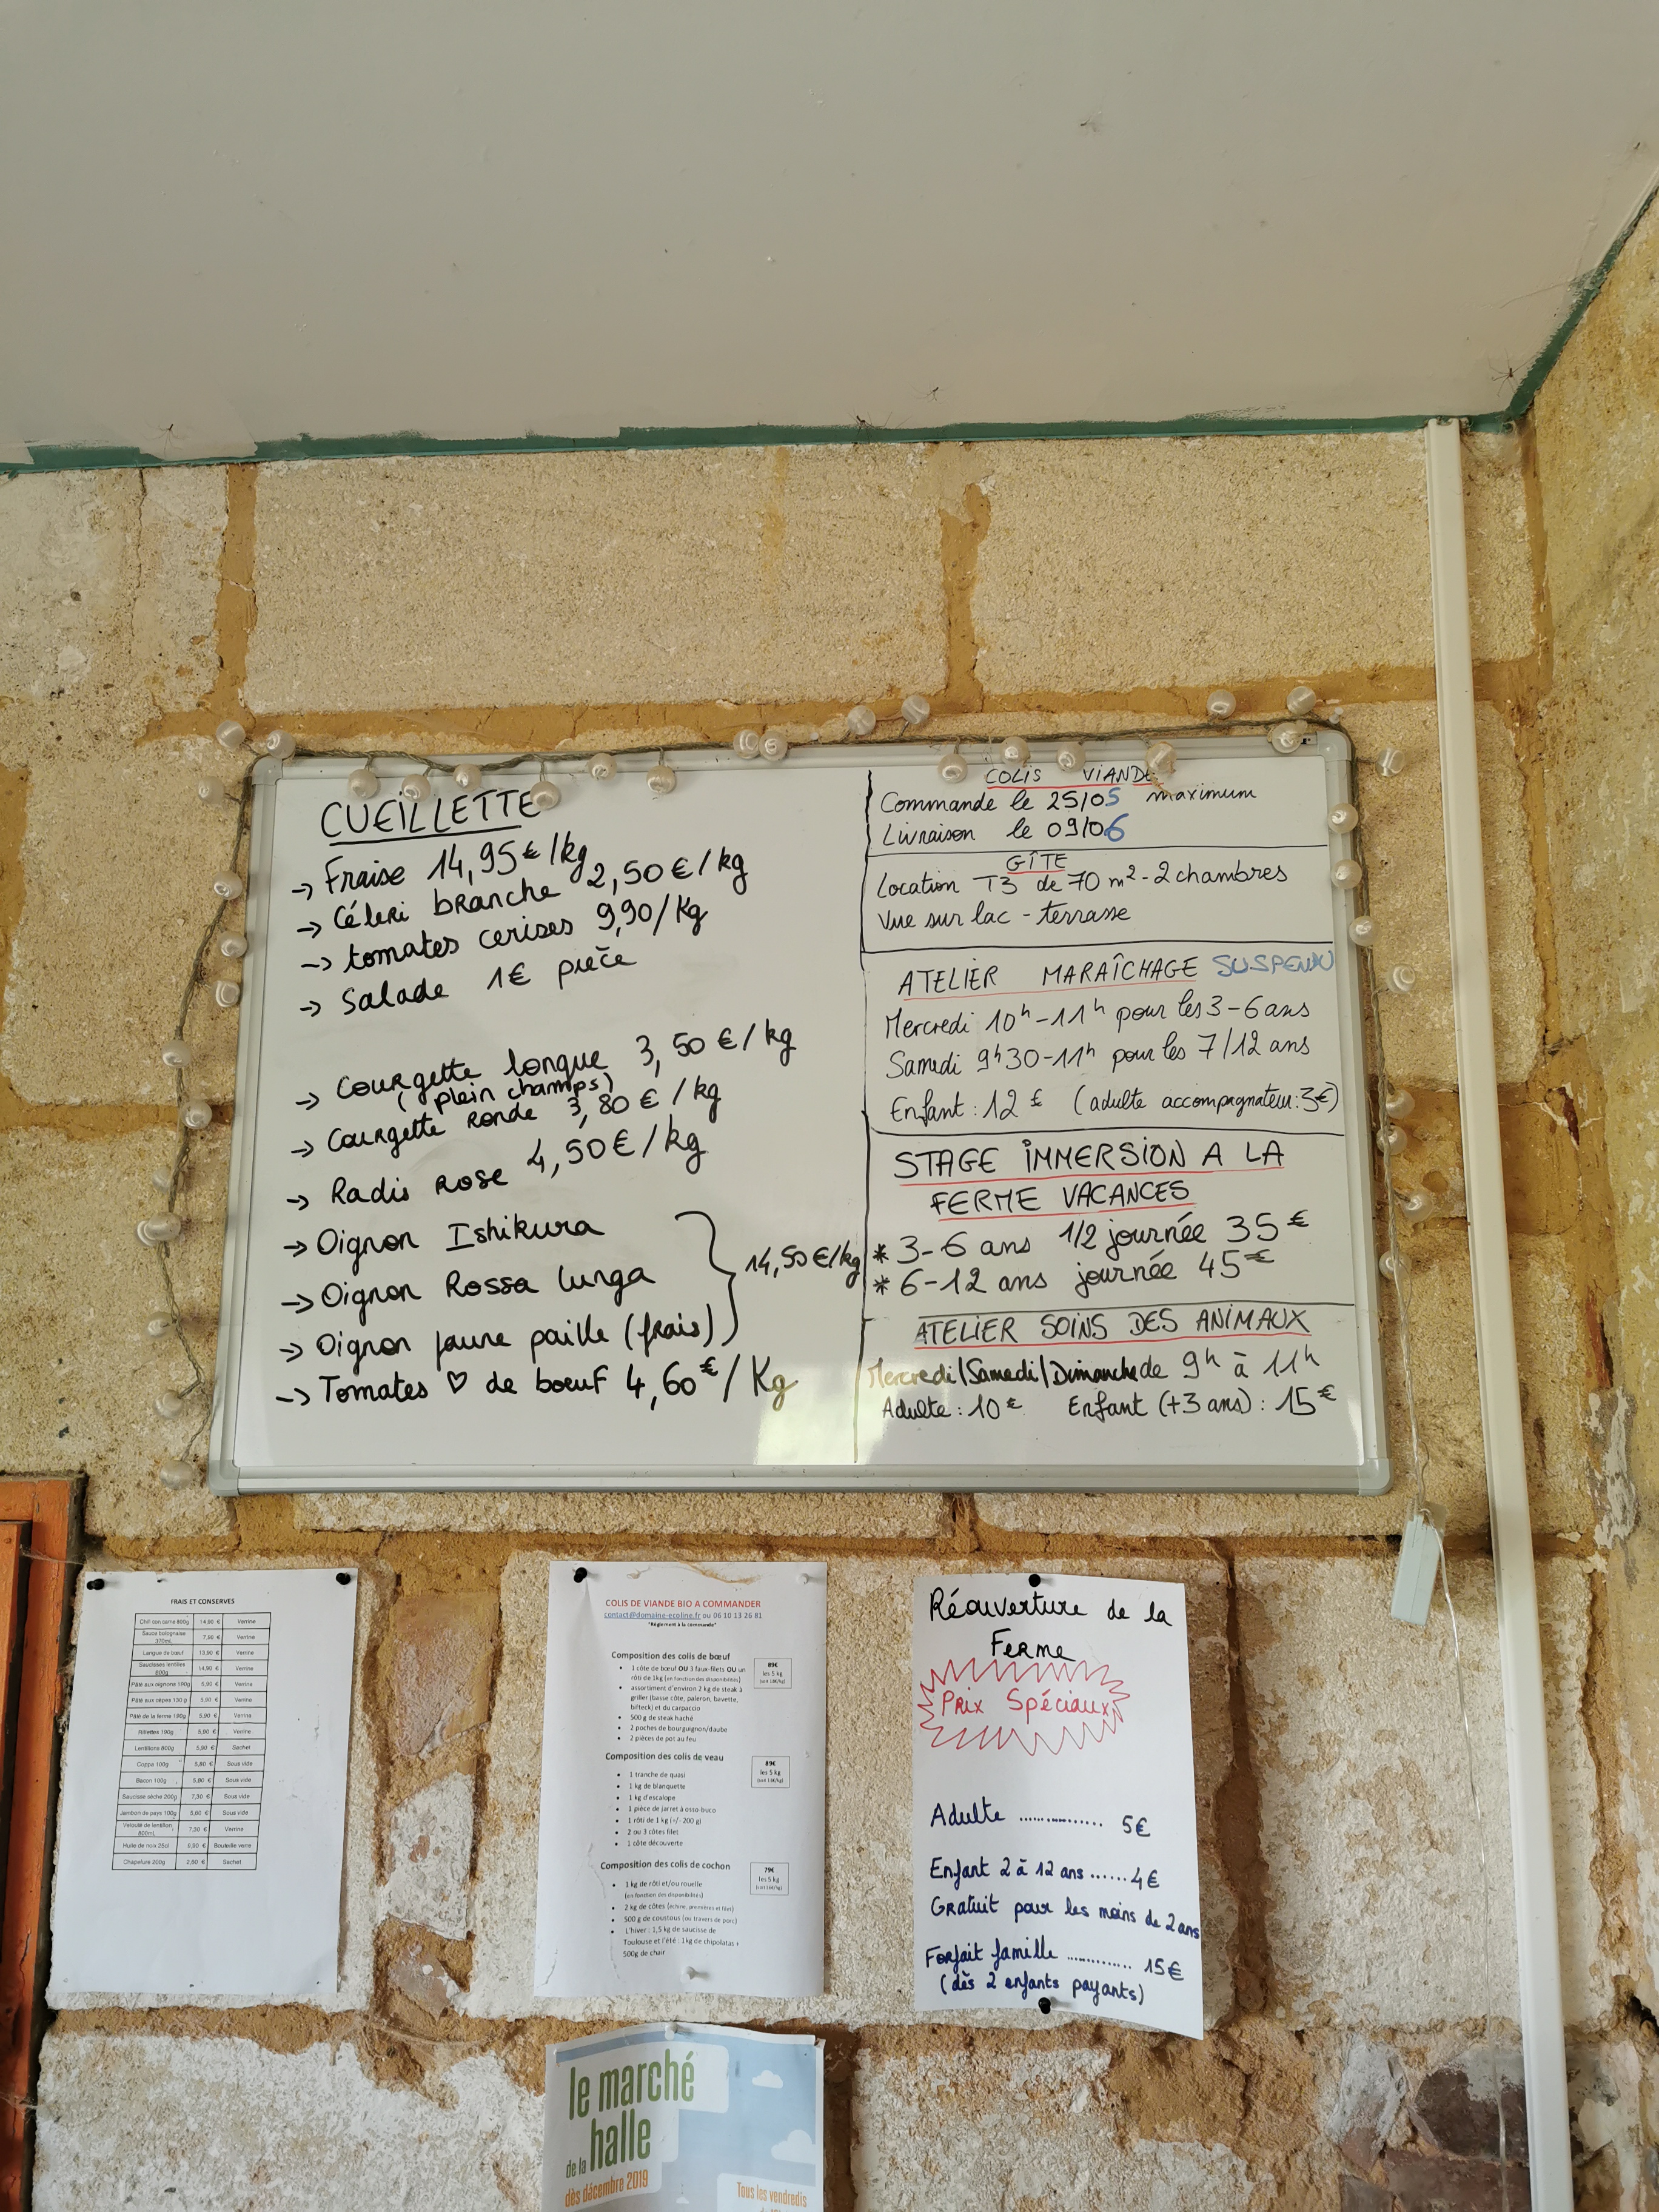 CUEILLETTE
→ Fraise 14,95€/kg
→ Céleri branche 2,50€/kg
→ tomates cerises 9,90/kg
→ Salade 1€ pièce
→ Courgette longue 3,50€/kg
(plein champs)
→ Courgette ronde 3,80€/kg
→ Radis rose 4,50€/kg
→ Oignon Ishikura
→ Oignon Rossa lunga
14,50€/kg
→ Oignon jaune paille (frais)
→ Tomates ♡ de boeuf 4,60€/Kg
COLIS VIANDE
Commande le 25/05 maximum
Livraison le 09/06
GÎTE
Location T3 de 70 m² - 2 chambres
Vue sur lac - terrasse
ATELIER MARAÎCHAGE SUSPENDU
Mercredi 10h-11h pour les 3-6 ans
Samedi 9h30-11h pour les 7/12 ans
Enfant : 12€ (adulte accompagnateur : 3€)
STAGE IMMERSION A LA
FERME VACANCES
* 3-6 ans 1/2 journée 35€
* 6-12 ans journée 45€
ATELIER SOINS DES ANIMAUX
Mercredi/Samedi/Dimanche de 9h à 11h
Adulte : 10€ Enfant (+3 ans) : 15€
FRAIS ET CONSERVES
Chili con carne 800g 14,90 € Verrine
Sauce bolognaise 370mL 7,90 € Verrine
Langue de bœuf 13,90 € Verrine
Saucisses lentilles 800g 14,90 € Verrine
Pâté aux oignons 180g 5,90 € Verrine
Pâté aux cèpes 130 g 5,80 € Verrine
Pâté de la ferme 190g 5,90 € Verrine
Rillettes 180g 5,90 € Verrine
Lentillons 800g 5,90 € Sachet
Coppa 100g 5,80 € Sous vide
Bacon 100g 5,80 € Sous vide
Saucisse sèche 200g 7,30 € Sous vide
Jambon de pays 100g 5,80 € Sous vide
Velouté de lentillon 800mL 7,30 € Verrine
Huile de noix 25cl 8,90 € Bouteille verre
Chapelure 200g 2,60 € Sachet
COLIS DE VIANDE BIO A COMMANDER
contact@domaine-ecoline.fr ou 06 10 13 26 81
"Règlement à la commande"
Composition des colis de bœuf
89€
les 5 kg
(soit 18€/kg)
• 1 côte de bœuf OU 3 faux-filets OU un
rôti de 1kg (en fonction des disponibilités)
• assortiment d'environ 2 kg de steak à
griller (basse côte, paleron, bavette,
bifteck) et du carpaccio
• 500 g de steak haché
• 2 poches de bourguignon/daube
• 2 pièces de pot au feu
Composition des colis de veau
89€
les 5 kg
(soit 18€/kg)
• 1 tranche de quasi
• 1 kg de blanquette
• 1 kg d'escalope
• 1 pièce de jarret à osso-buco
• 1 rôti de 1 kg (+/- 200 g)
• 2 ou 3 côtes filet
• 1 côte découverte
Composition des colis de cochon
79€
les 5 kg
(soit 16€/kg)
• 1 kg de rôti et/ou rouelle
(en fonction des disponibilités)
• 2 kg de côtes (échine, premières et filet)
• 500 g de coustous (ou travers de porc)
• L'hiver : 1,5 kg de saucisse de
Toulouse et l'été : 1kg de chipolatas +
500g de chair
Réouverture de la
Ferme
Prix Spéciaux
Adulte .............. 5€
Enfant 2 à 12 ans ...... 4€
Gratuit pour les moins de 2 ans
Forfait famille ............ 15€
(dès 2 enfants payants)
le marché
de la halle
dès décembre 2019
Tous les vendredis